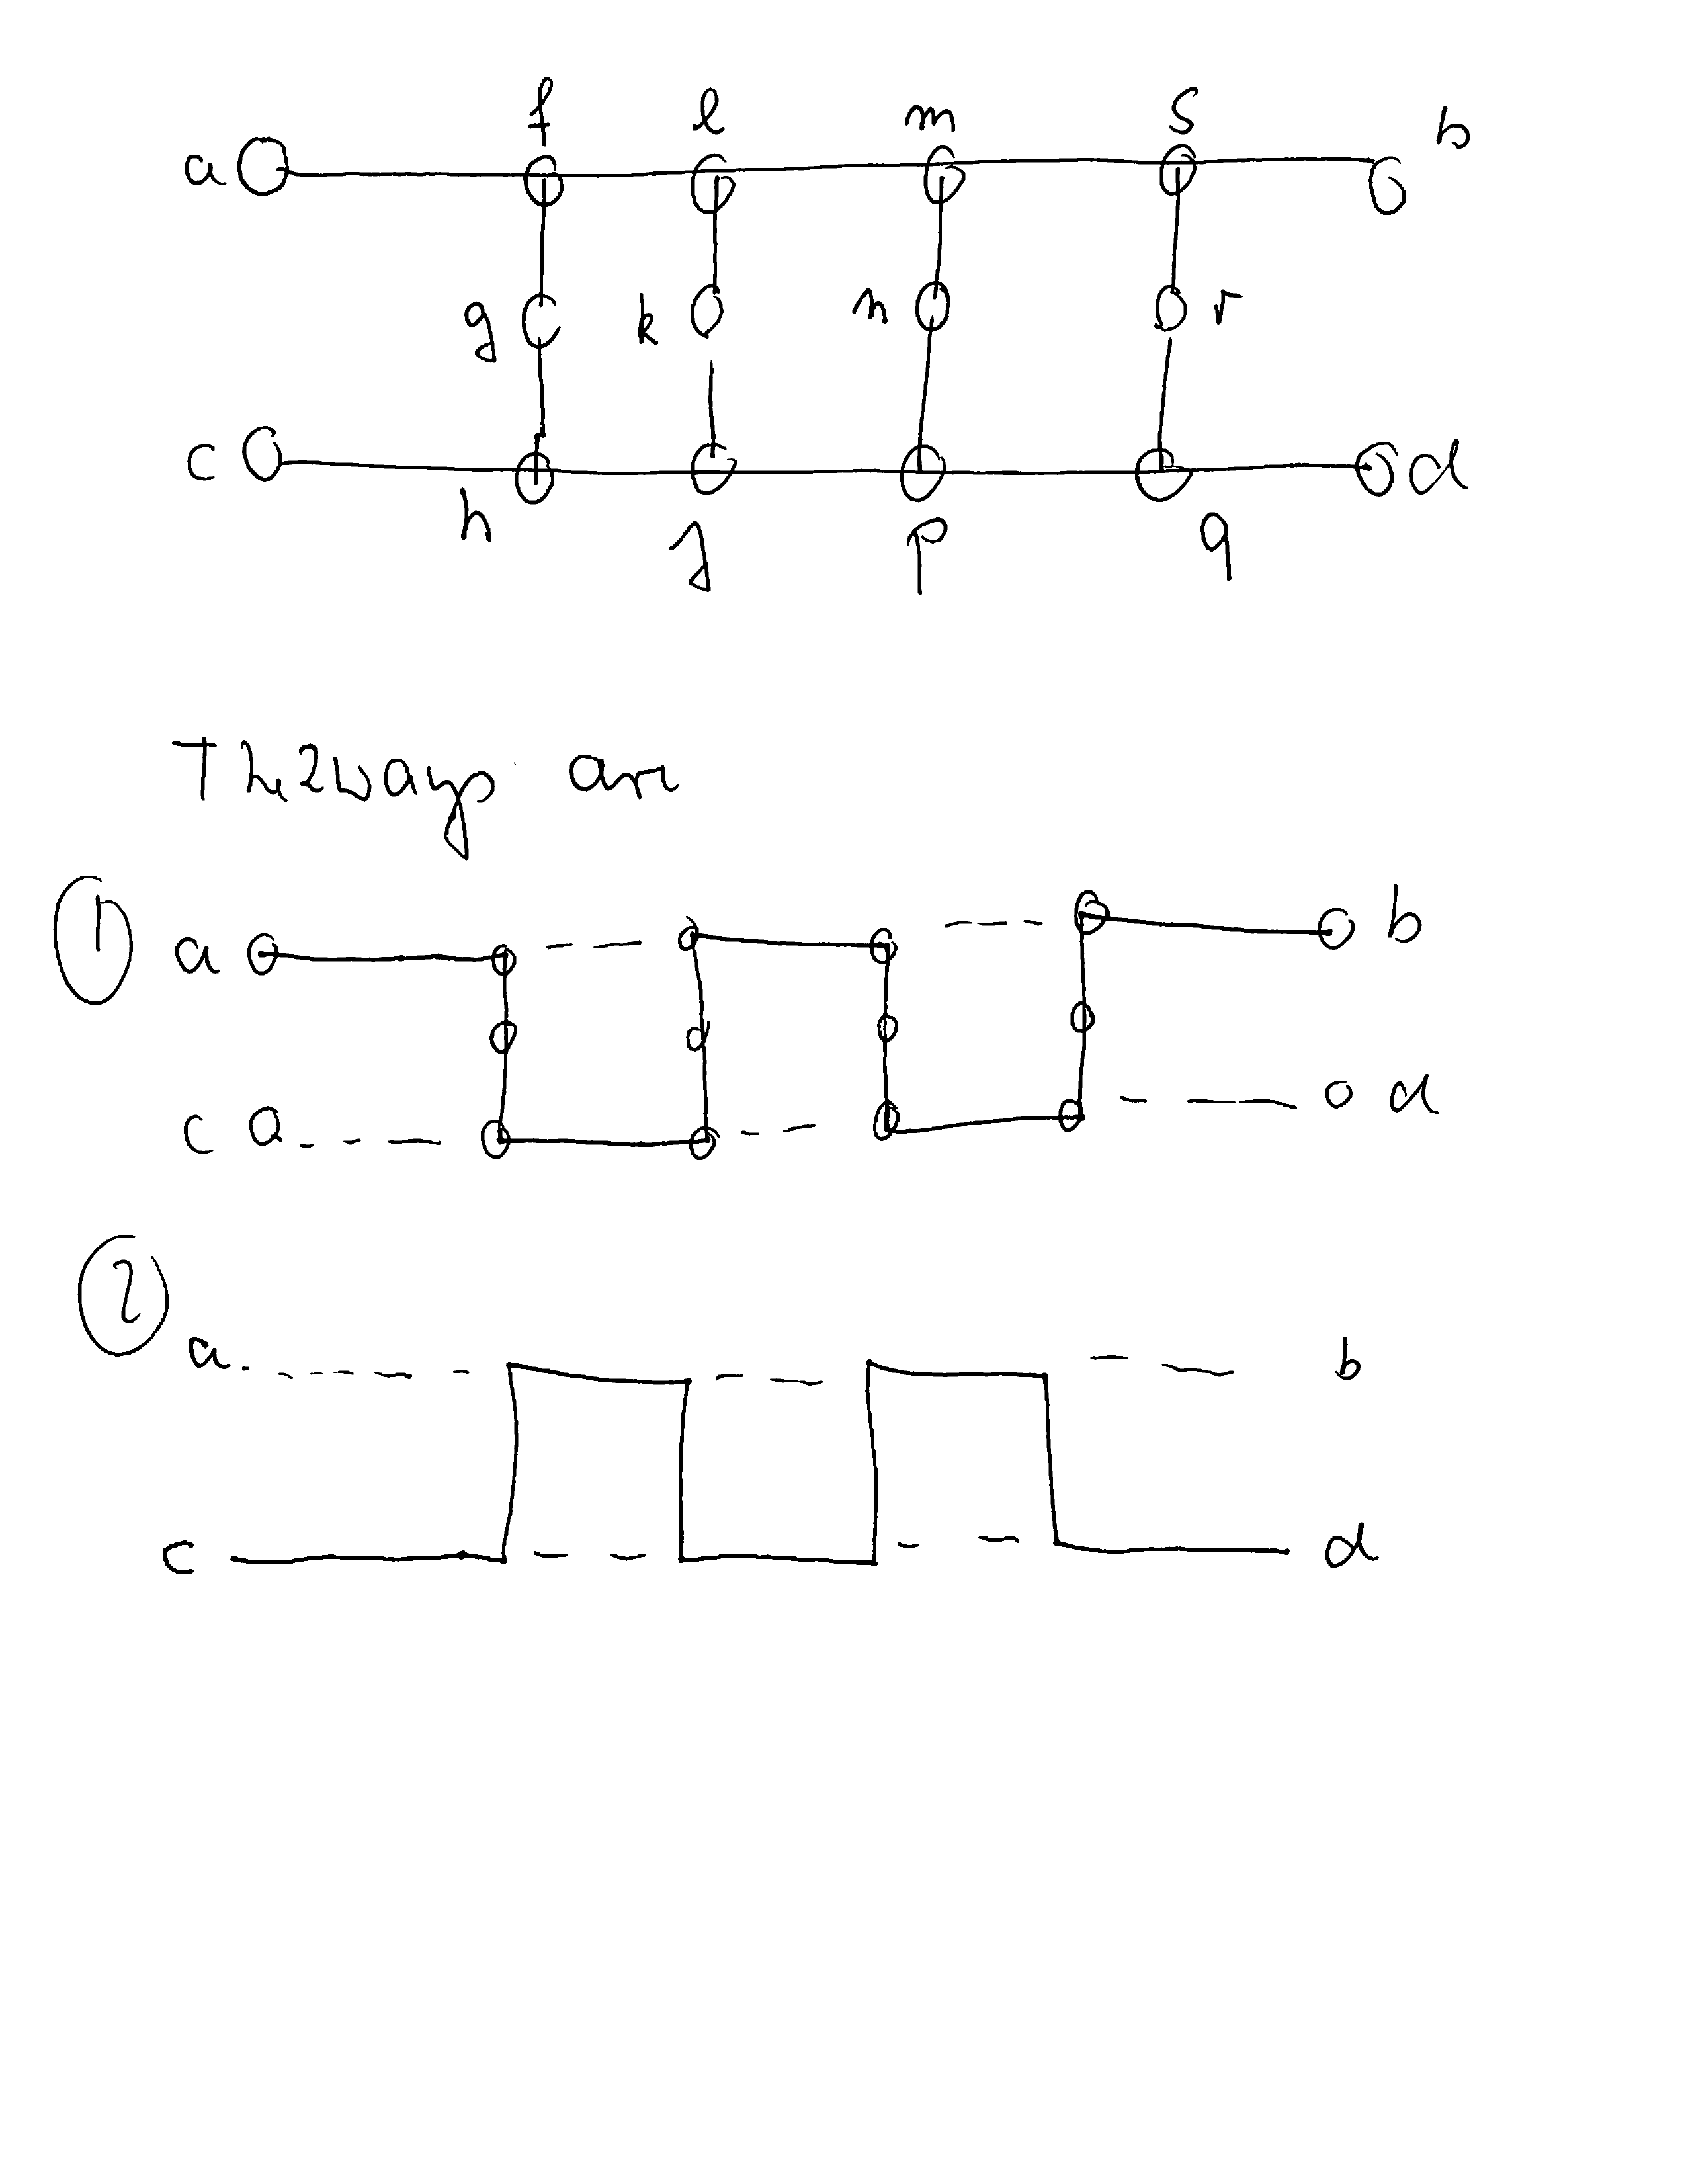 f l m s b
a
g k n r
c d
h j p q
The 2 ways are
① a b
c d
②
a b
c d